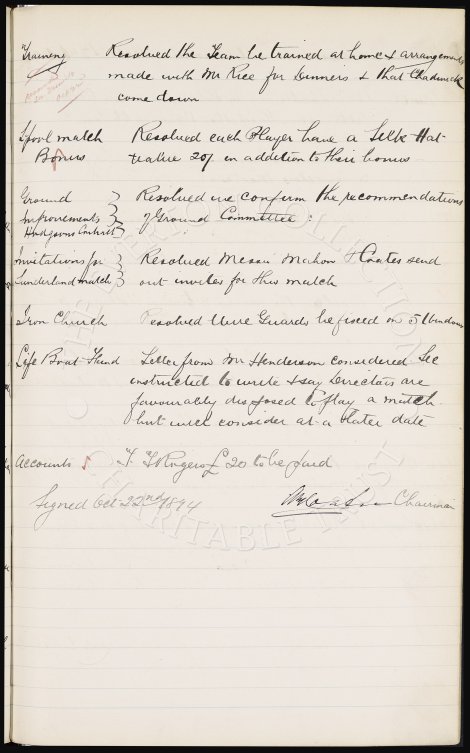 Training Resolved the Team be trained at home & arrangements
made with Mr Rice for Dinners & that Chadwick
come down
L'pool match Resolved each Player have a Silk Hat
Bonus value 20/ in addition to their bonus
Ground Resolved we confirm the recommendations
Improvements of Ground Committee :
Hudgsons Contract
Invitations for Resolved Messrs Mahon & Coates send
Sunderland match out invites for this match
Iron Church Resolved Wire Guards be fixed on 5 Windows
Life Boat Fund Letter from Mr Henderson considered Sec
instructed to write & say Directors are
favourably disposed to play a match
but will consider at a later date
Accounts Rogers £20 to be paid
Signed Oct 22nd 1894 Chairman
EVERTON COLLECTION CHARITABLE TRUST